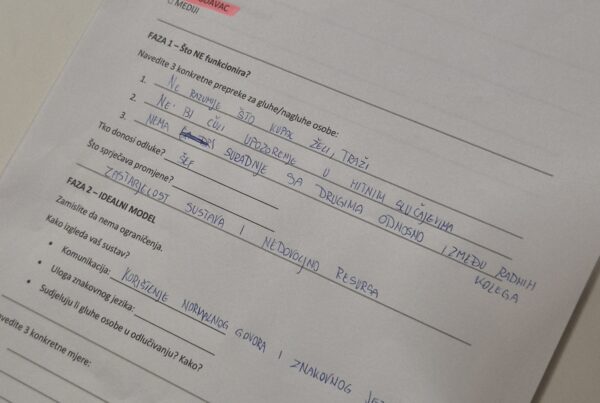 DAVAC
□ MEDIJI
FAZA 1 – Što NE funkcionira?
Navedite 3 konkretne prepreke za gluhe/nagluhe osobe:
1. NE RAZUMIJE ŠTO KUPAC ŽELI, TRAŽI
2. NE BI ČULI UPOZORENJE U HITNIM SLUČAJEVIMA
3. NEMA SURADNJE SA DRUGIMA ODNOSNO IZMEĐU RADNIH KOLEGA
Tko donosi odluke? ŠEF
Što sprječava promjene?
ZASTARJELOST SUSTAVA I NEDOVOLJNO RESURSA
FAZA 2 – IDEALNI MODEL
Zamislite da nema ograničenja.
Kako izgleda vaš sustav?
• Komunikacija: KORIŠTENJE NORMALNOG GOVORA I ZNAKOVNOG
• Uloga znakovnog jezika:
• Sudjeluju li gluhe osobe u odlučivanju? Kako?
Navedite 3 konkretne mjere: